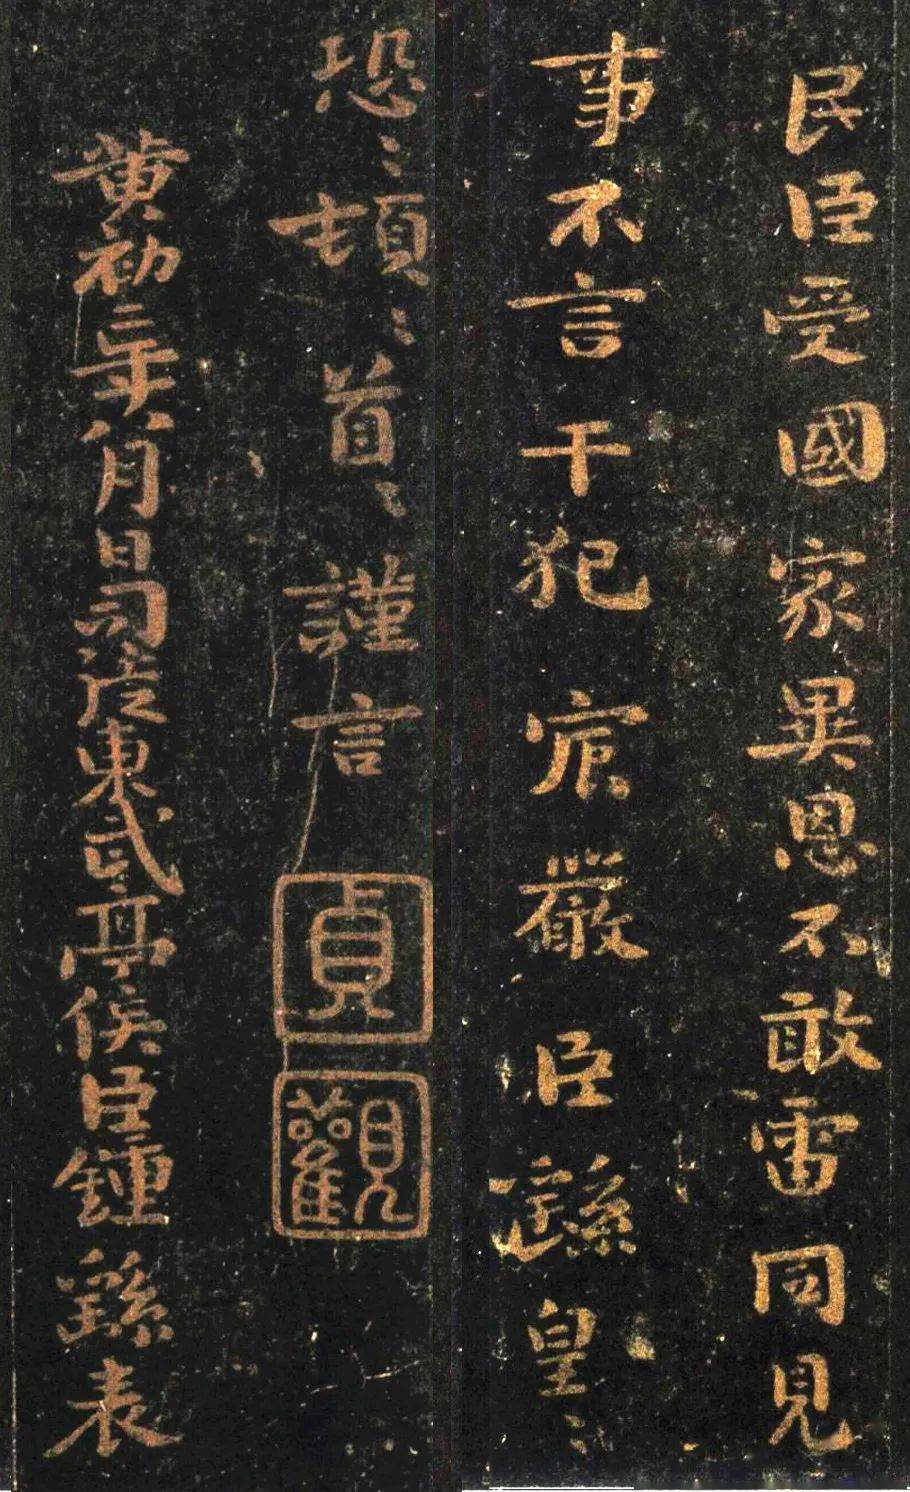 民臣受國家異恩不敢雷同見
事不言干犯宸嚴臣繇皇〻
恐〻頓〻首〻謹言
貞
觀
黄初二年八月日司徒東武亭侯臣鍾繇表